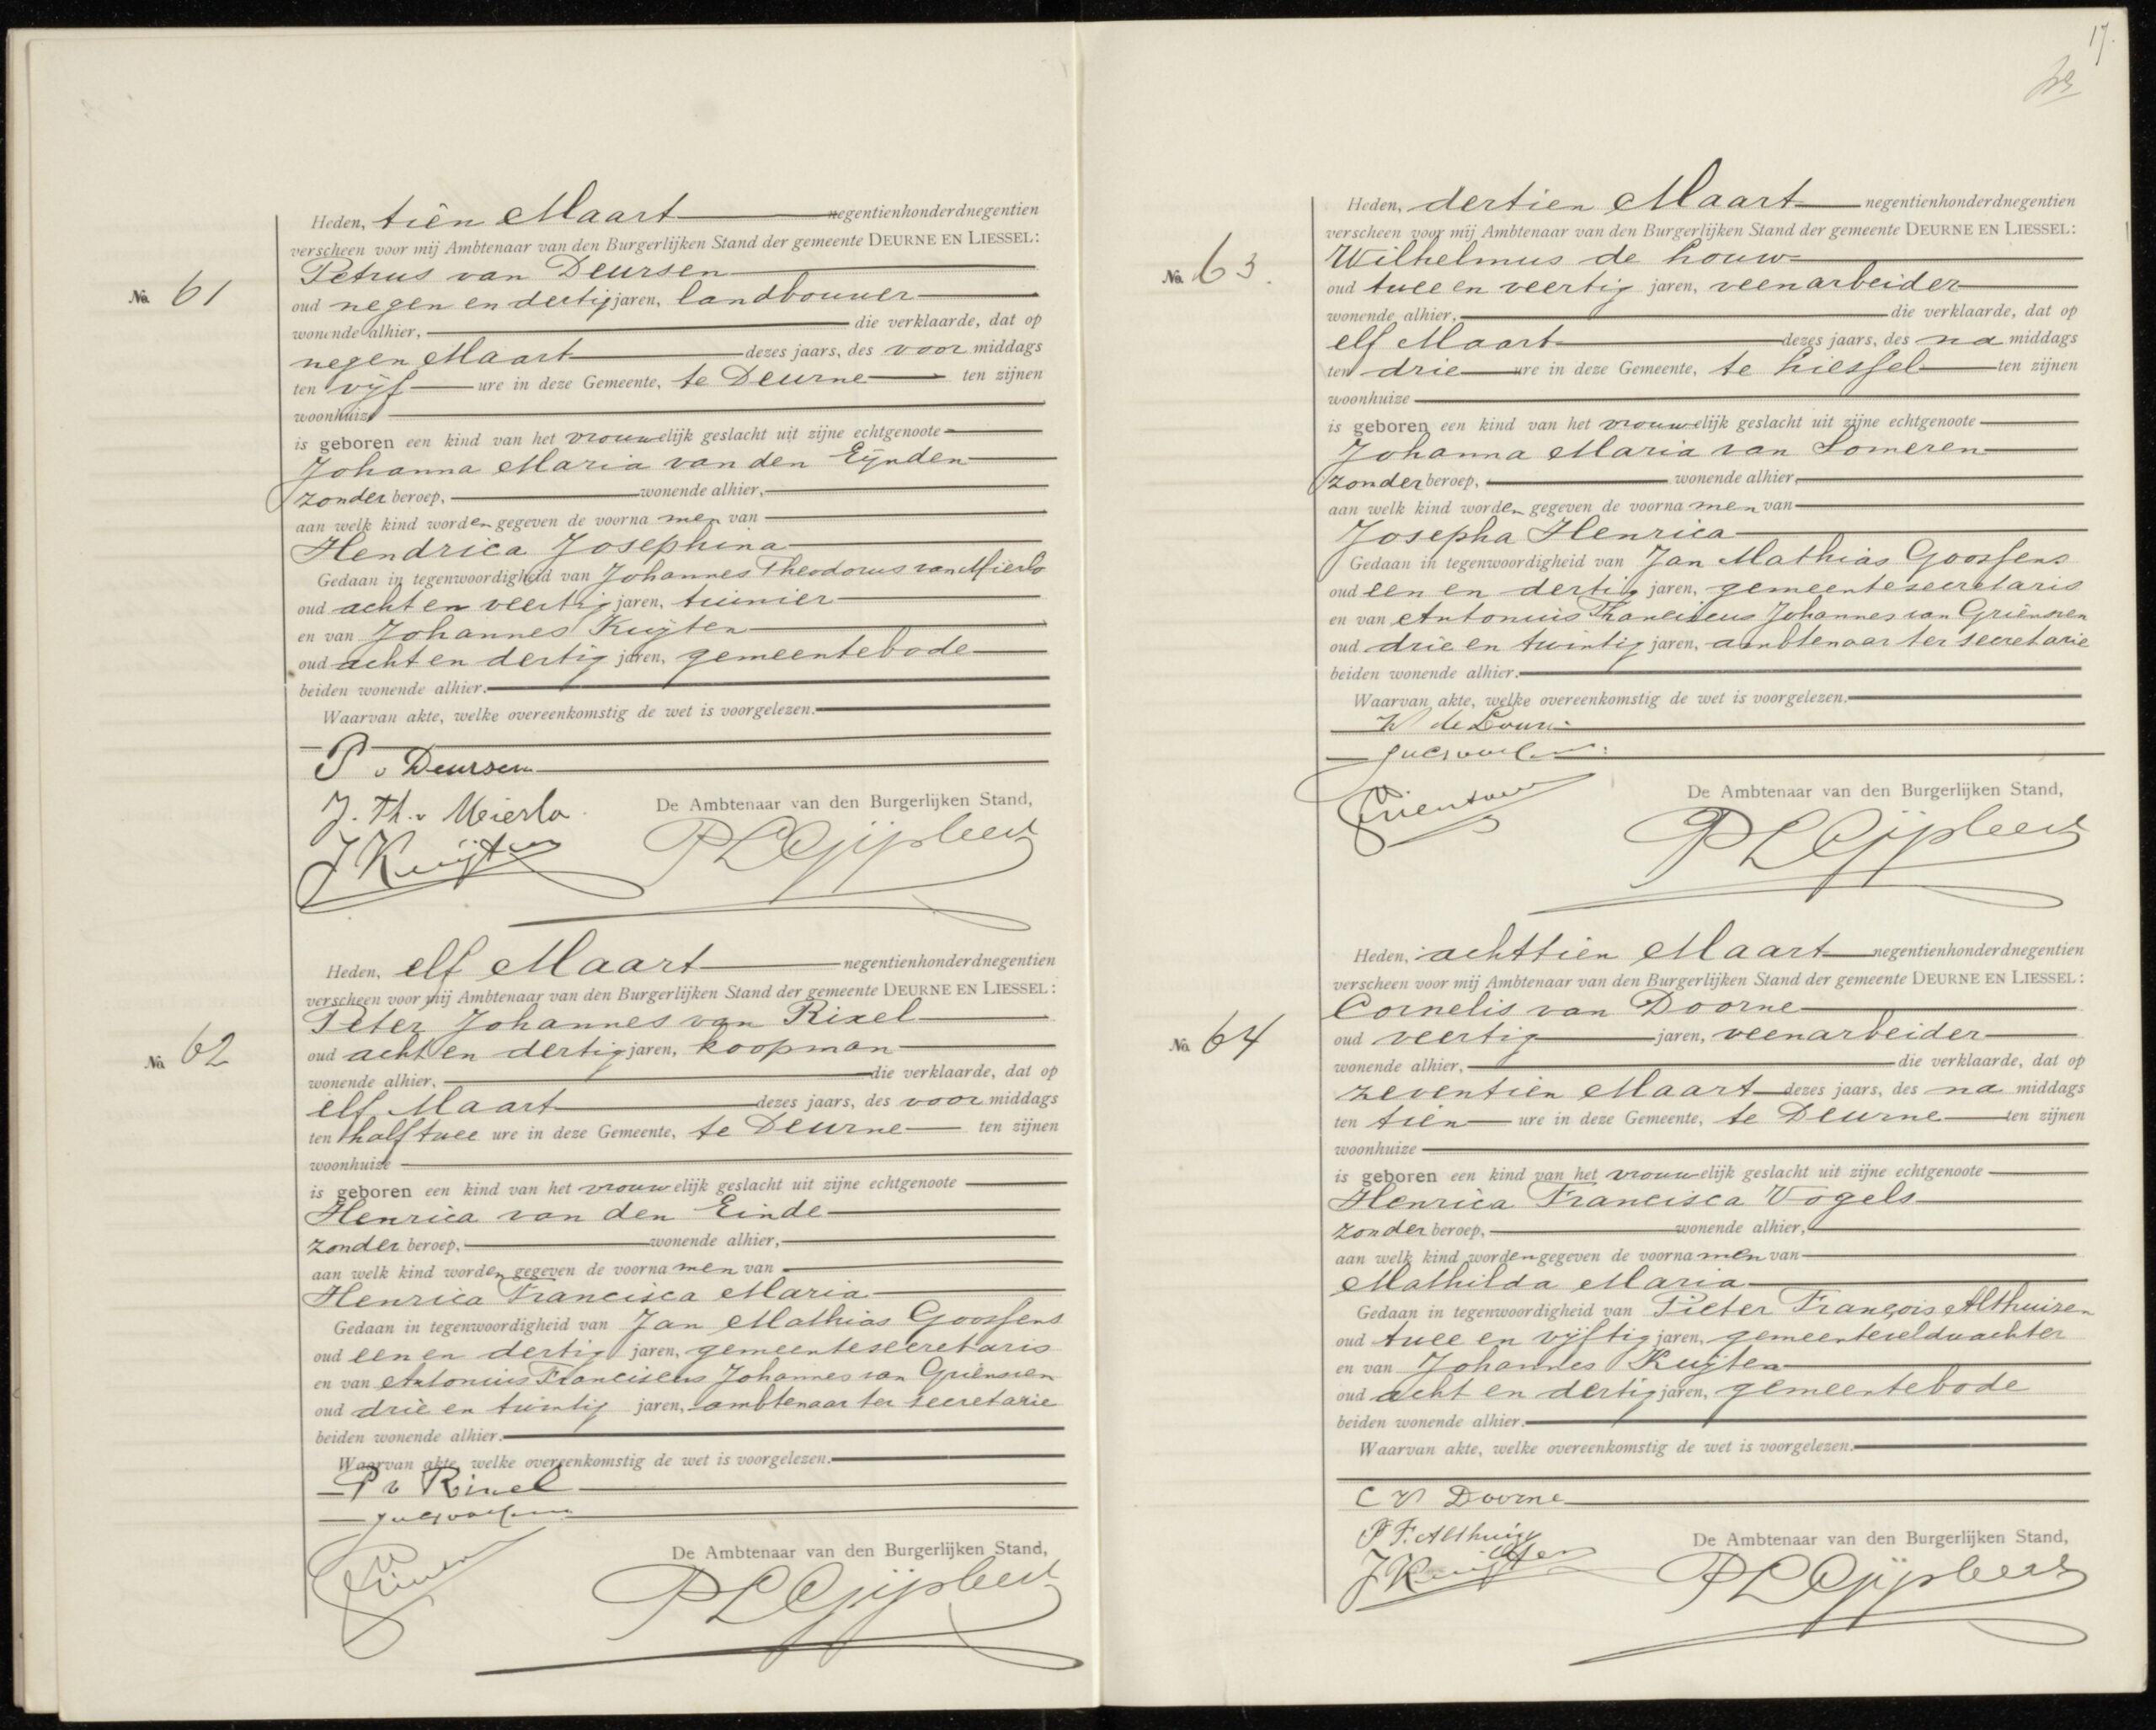 17.
Heden, tien Maart negentienhonderdnegentien
verscheen voor mij Ambtenaar van den Burgerlijken Stand der gemeente DEURNE EN LIESSEL:
Petrus van Deursen
No. 61
oud negen en dertig jaren, landbouwer
wonende alhier, die verklaarde, dat op
negen Maart dezes jaars, des voor middags
ten vijf ure in deze Gemeente, te Deurne ten zijnen
woonhuize
is geboren een kind van het vrouwelijk geslacht uit zijne echtgenoote
Johanna Maria van den Eijnden
zonder beroep, wonende alhier,
aan welk kind worden gegeven de voornamen van
Hendrica Josephina
Gedaan in tegenwoordigheid van Johannes Theodorus van Mierlo
oud acht en veertig jaren, tuinier
en van Johannes Kuijten
oud acht en dertig jaren, gemeentebode
beiden wonende alhier.
Waarvan akte, welke overeenkomstig de wet is voorgelezen.
P v Deursen
J. Th. v Mierlo
De Ambtenaar van den Burgerlijken Stand,
J Kuijten
Heden, elf Maart negentienhonderdnegentien
verscheen voor mij Ambtenaar van den Burgerlijken Stand der gemeente DEURNE EN LIESSEL:
Peter Johannes van Rixel
No. 62
oud acht en dertig jaren, koopman
wonende alhier, die verklaarde, dat op
elf Maart dezes jaars, des voor middags
ten half twee ure in deze Gemeente, te Deurne ten zijnen
woonhuize
is geboren een kind van het vrouwelijk geslacht uit zijne echtgenoote
Henrica van den Einde
zonder beroep, wonende alhier,
aan welk kind worden gegeven de voornamen van
Henrica Francisca Maria
Gedaan in tegenwoordigheid van Jan Mathias Goossens
oud een en dertig jaren, gemeentesecretaris
en van Antonius Franciscus Johannes van Griensven
oud drie en twintig jaren, ambtenaar ter secretarie
beiden wonende alhier.
Waarvan akte, welke overeenkomstig de wet is voorgelezen.
P v Rixel
De Ambtenaar van den Burgerlijken Stand,
Heden, dertien Maart negentienhonderdnegentien
verscheen voor mij Ambtenaar van den Burgerlijken Stand der gemeente DEURNE EN LIESSEL:
Wilhelmus de Louw
No. 63.
oud twee en veertig jaren, veenarbeider
wonende alhier, die verklaarde, dat op
elf Maart dezes jaars, des na middags
ten drie ure in deze Gemeente, te Liessel ten zijnen
woonhuize
is geboren een kind van het vrouwelijk geslacht uit zijne echtgenoote
Johanna Maria van Someren
zonder beroep, wonende alhier,
aan welk kind worden gegeven de voornamen van
Josepha Henrica
Gedaan in tegenwoordigheid van Jan Mathias Goossens
oud een en dertig jaren, gemeentesecretaris
en van Antonius Franciscus Johannes van Griensven
oud drie en twintig jaren, ambtenaar ter secretarie
beiden wonende alhier.
Waarvan akte, welke overeenkomstig de wet is voorgelezen.
W de Louw
De Ambtenaar van den Burgerlijken Stand,
Heden, achttien Maart negentienhonderdnegentien
verscheen voor mij Ambtenaar van den Burgerlijken Stand der gemeente DEURNE EN LIESSEL:
Cornelis van Doorne
No. 64
oud veertig jaren, veenarbeider
wonende alhier, die verklaarde, dat op
zeventien Maart dezes jaars, des na middags
ten tien ure in deze Gemeente, te Deurne ten zijnen
woonhuize
is geboren een kind van het vrouwelijk geslacht uit zijne echtgenoote
Henrica Francisca Vogels
zonder beroep, wonende alhier,
aan welk kind worden gegeven de voornamen van
Mathilda Maria
Gedaan in tegenwoordigheid van Pieter François Althuizen
oud twee en vijftig jaren, gemeenteveldwachter
en van Johannes Kuijten
oud acht en dertig jaren, gemeentebode
beiden wonende alhier.
Waarvan akte, welke overeenkomstig de wet is voorgelezen.
C V Doorne
P F. Althuizen
De Ambtenaar van den Burgerlijken Stand,
J Kuijten